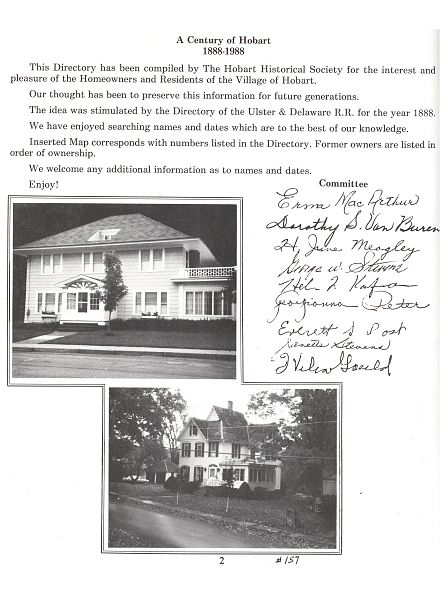 A Century of Hobart
1888-1988
This Directory has been compiled by The Hobart Historical Society for the interest and
pleasure of the Homeowners and Residents of the Village of Hobart.
Our thought has been to preserve this information for future generations.
The idea was stimulated by the Directory of the Ulster & Delaware R.R. for the year 1888.
We have enjoyed searching names and dates which are to the best of our knowledge.
Inserted Map corresponds with numbers listed in the Directory. Former owners are listed in
order of ownership.
We welcome any additional information as to names and dates.
Enjoy!
Committee
Erma MacArthur
Dorothy S. Van Buren
H. June Meagley
Helen
Georgianna Peter
Everett S Post
Nanette Stevens
2
#157